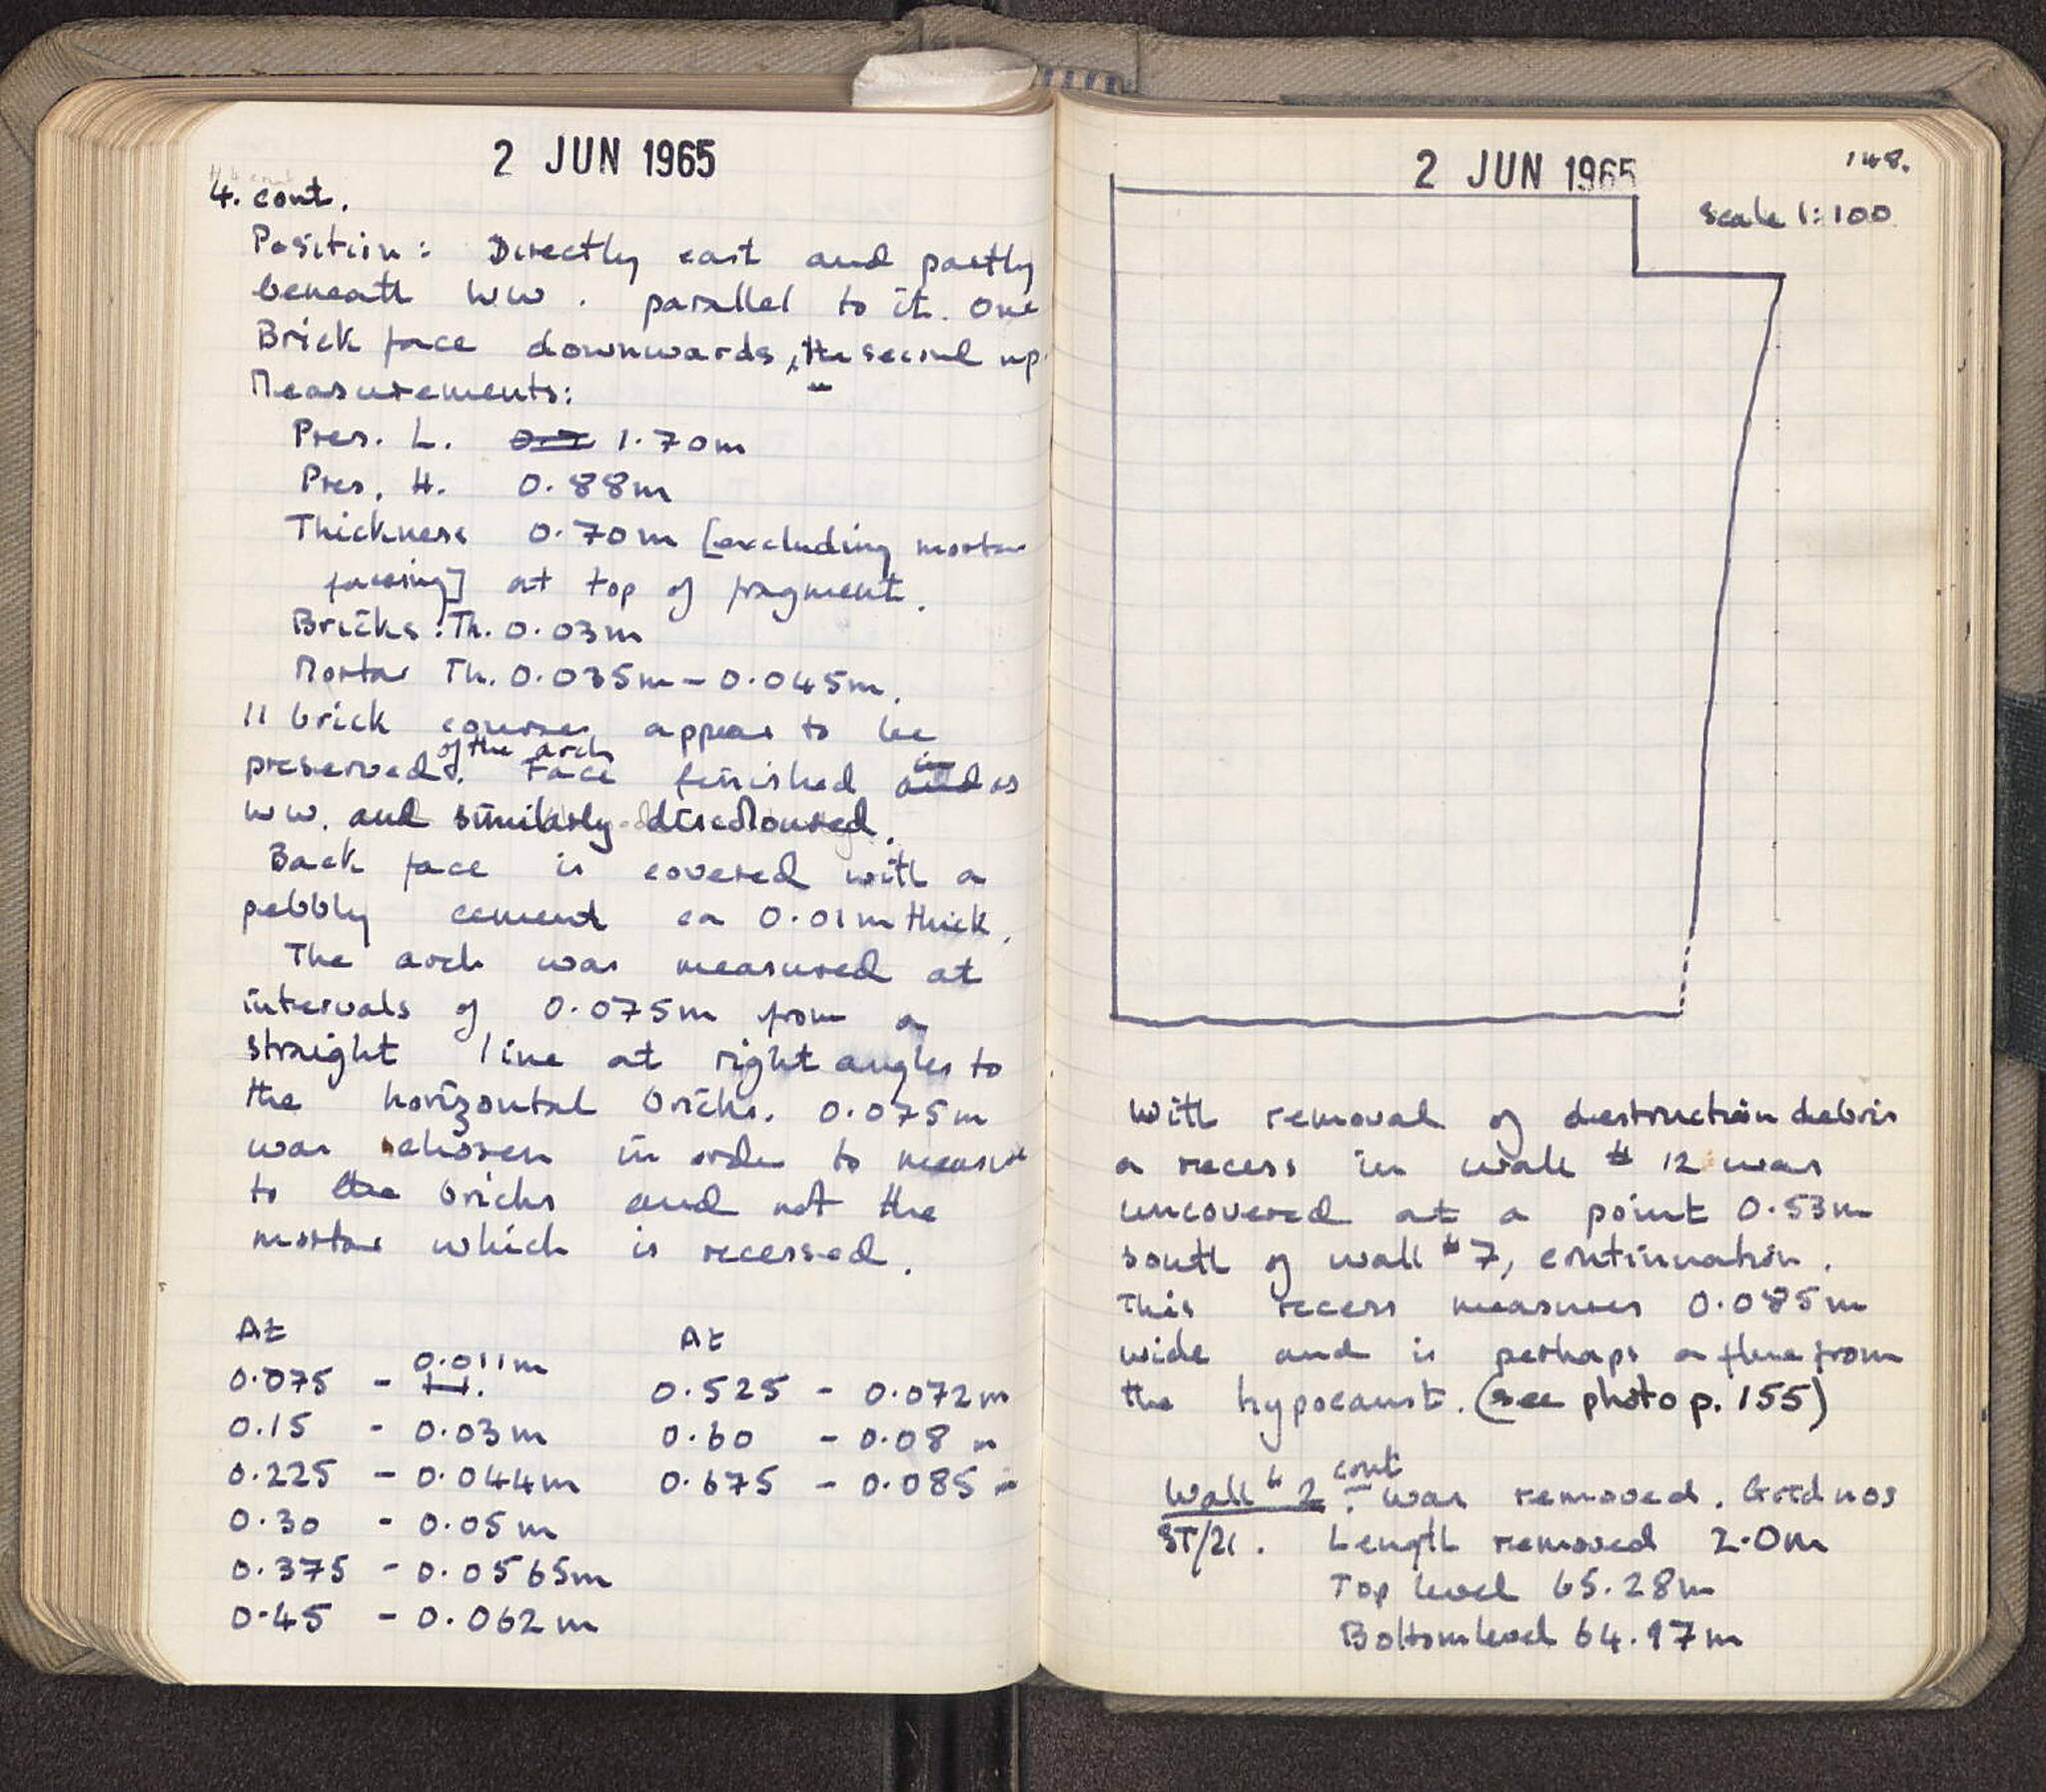 2 JUN 1965
4. cont.
Position: Directly east and partly
beneath WW. parallel to it. One
Brick face downwards, the second up.
Measurements:
Pres. L. 1.70m
Pres. H. 0.88m
Thickness 0.70m [excluding mortar
facing] at top of fragment.
Bricks: Th. 0.03m
Mortar Th. 0.035m - 0.045m.
11 brick courses appear to be
of the arch in
preserved. Face finished as
WW. and similarly discoloured.
Back face is covered with a
pebbly cement ca 0.01m thick.
The arch was measured at
intervals of 0.075m from a
straight line at right angles to
the horizontal bricks. 0.075m
was chosen in order to measure
to the bricks and not the
mortar which is recessed.
At At
0.075 - 0.011m 0.525 - 0.072m
0.15 - 0.03m 0.60 - 0.08 m
0.225 - 0.044m 0.675 - 0.085 m
0.30 - 0.05m
0.375 - 0.0565m
0.45 - 0.062m
2 JUN 1965
148.
Scale 1:100
With removal of destruction debris
a recess in wall # 12 was
uncovered at a point 0.53m
south of wall #7, continuation.
This recess measures 0.085m
wide and is perhaps a flue from
the hypocaust. (see photo p. 155)
Wall # 2 cont. was removed. Grid nos
ST/21. Length removed 2.0m
Top level 65.28m
Bottom level 64.97m